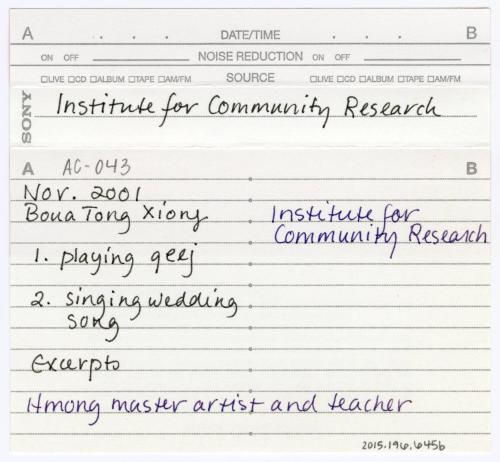 A . . . DATE/TIME . . . B
ON OFF NOISE REDUCTION ON OFF
□LIVE □CD □ALBUM □TAPE □AM/FM SOURCE □LIVE □CD □ALBUM □TAPE □AM/FM
SONY
Institute for Community Research
A AC-043 B
Nov. 2001
Boua Tong Xiong
Institute for
Community Research
1. playing qeej
2. singing wedding
song
Excerpts
Hmong master artist and teacher
2015.196.645b